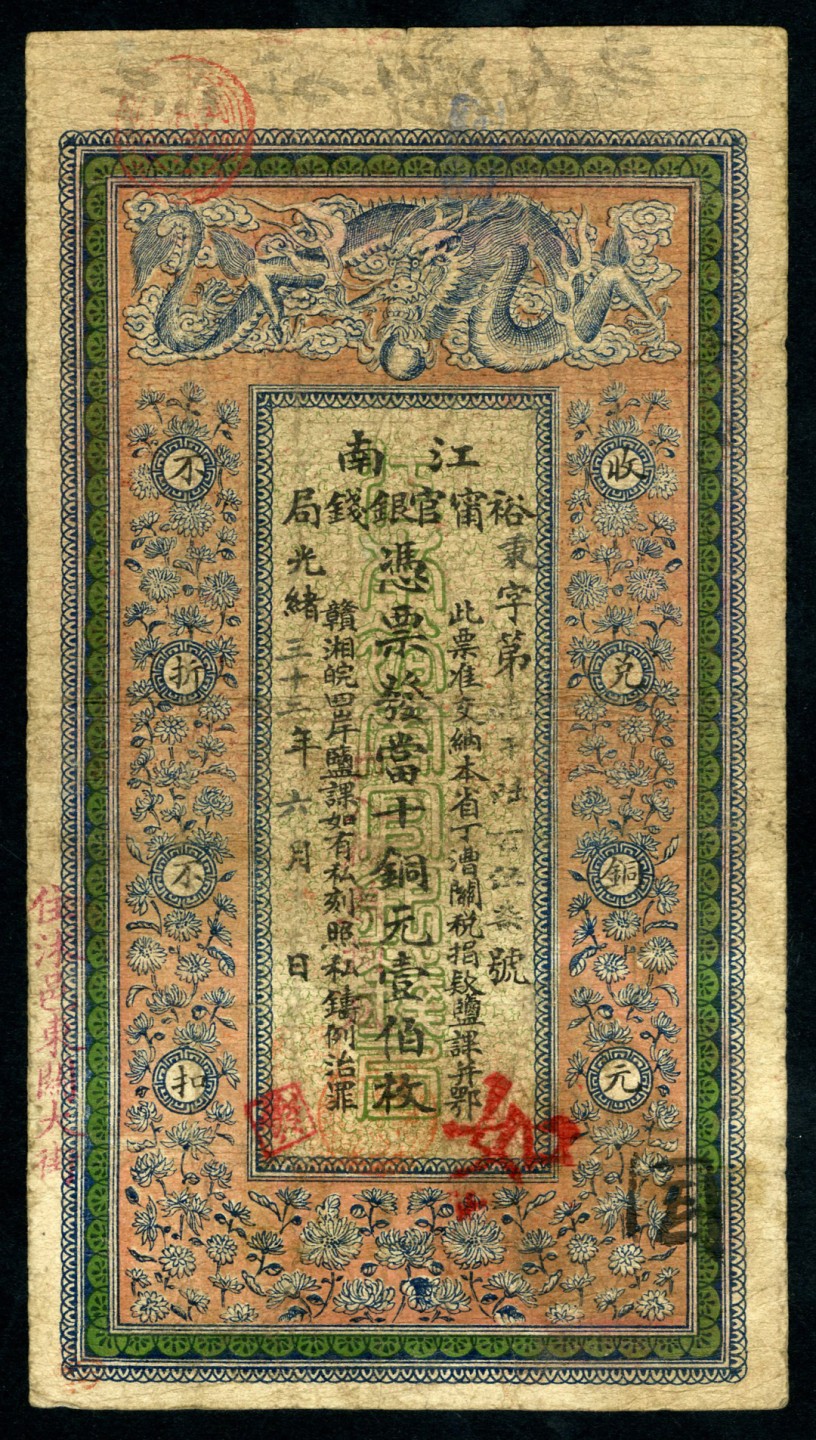 江南
裕甯官銀錢局
收兌銅元
秉字第陸百號
此票准交納本省丁漕關稅捐欵鹽課并鄂
憑票發當十銅元壹伯枚
贛湘皖四岸鹽課如有私刻照私鑄例治罪
光緒三十三年六月日
不折不扣
住沭邑東關大街
如